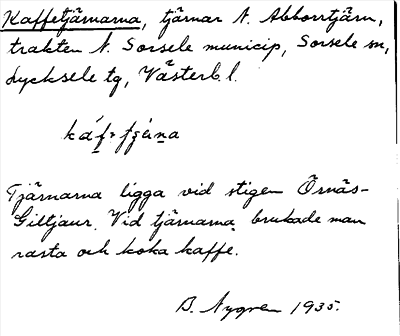 Kaffetjärnarna, tjärnar N. Abborrtjärn,
trakten N. Sorsele municip, Sorsele sn,
Lycksele tg, Västerb. l.
Tjärnarna ligga vid stigen Örnäs-
Giltjaur. Vid tjärnarna brukade man
rasta och koka kaffe.
B. Nygren 1935.